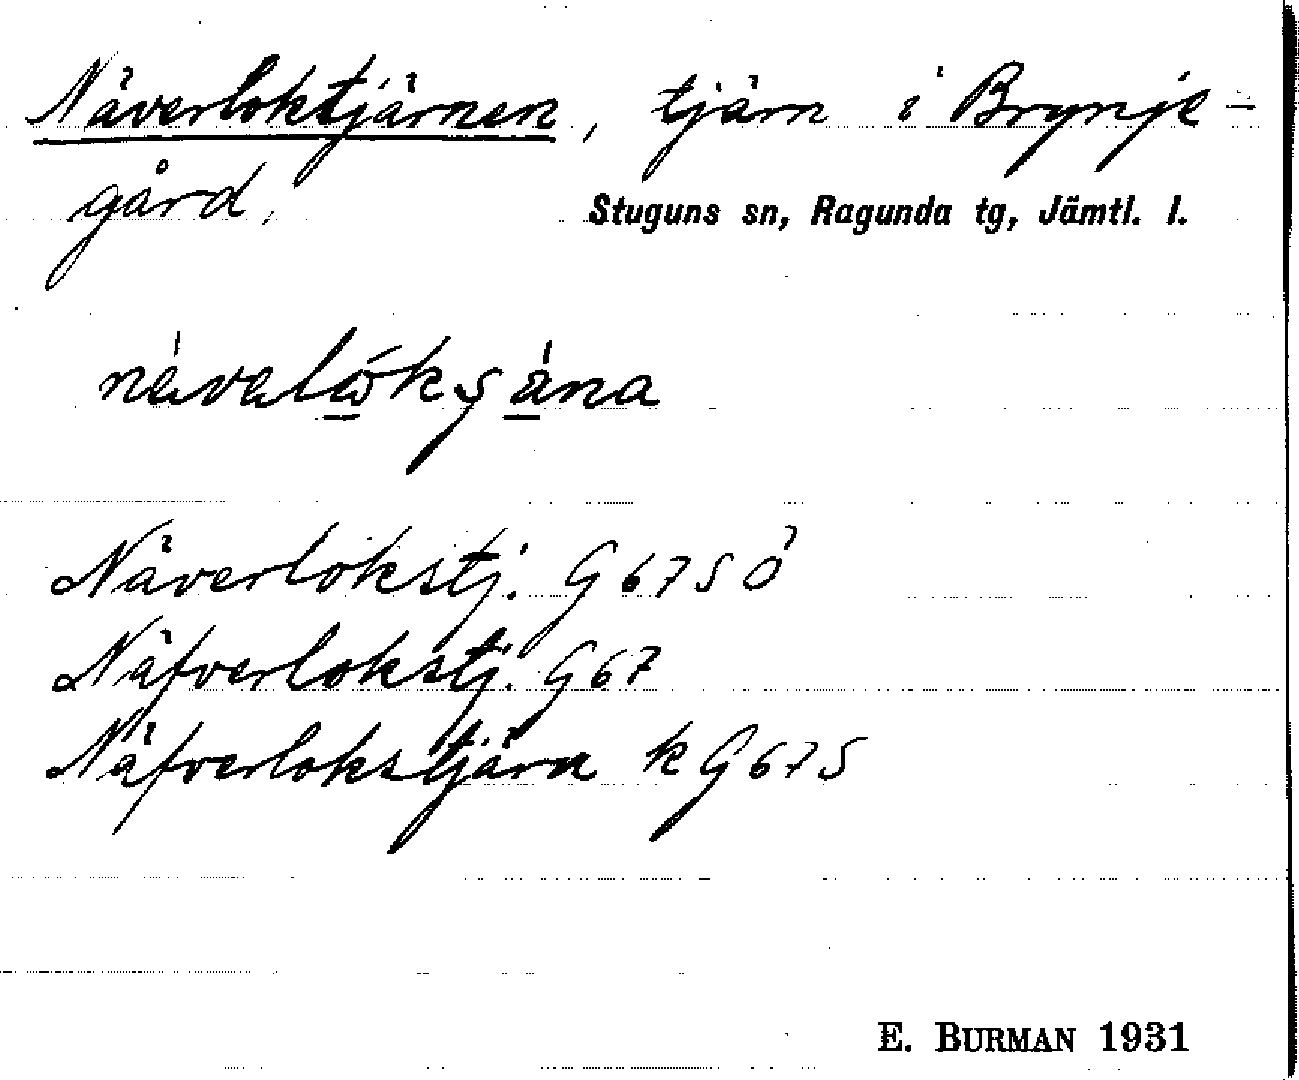 Näverloktjärnen, tjärn i Brynje-
gård,
Stuguns sn, Ragunda tg, Jämtl. l.
Näverlokstj. G 67 S Ö
Näfverlokstj. G 67
Näfverlokstjärn k G 67 S
E. BURMAN 1931